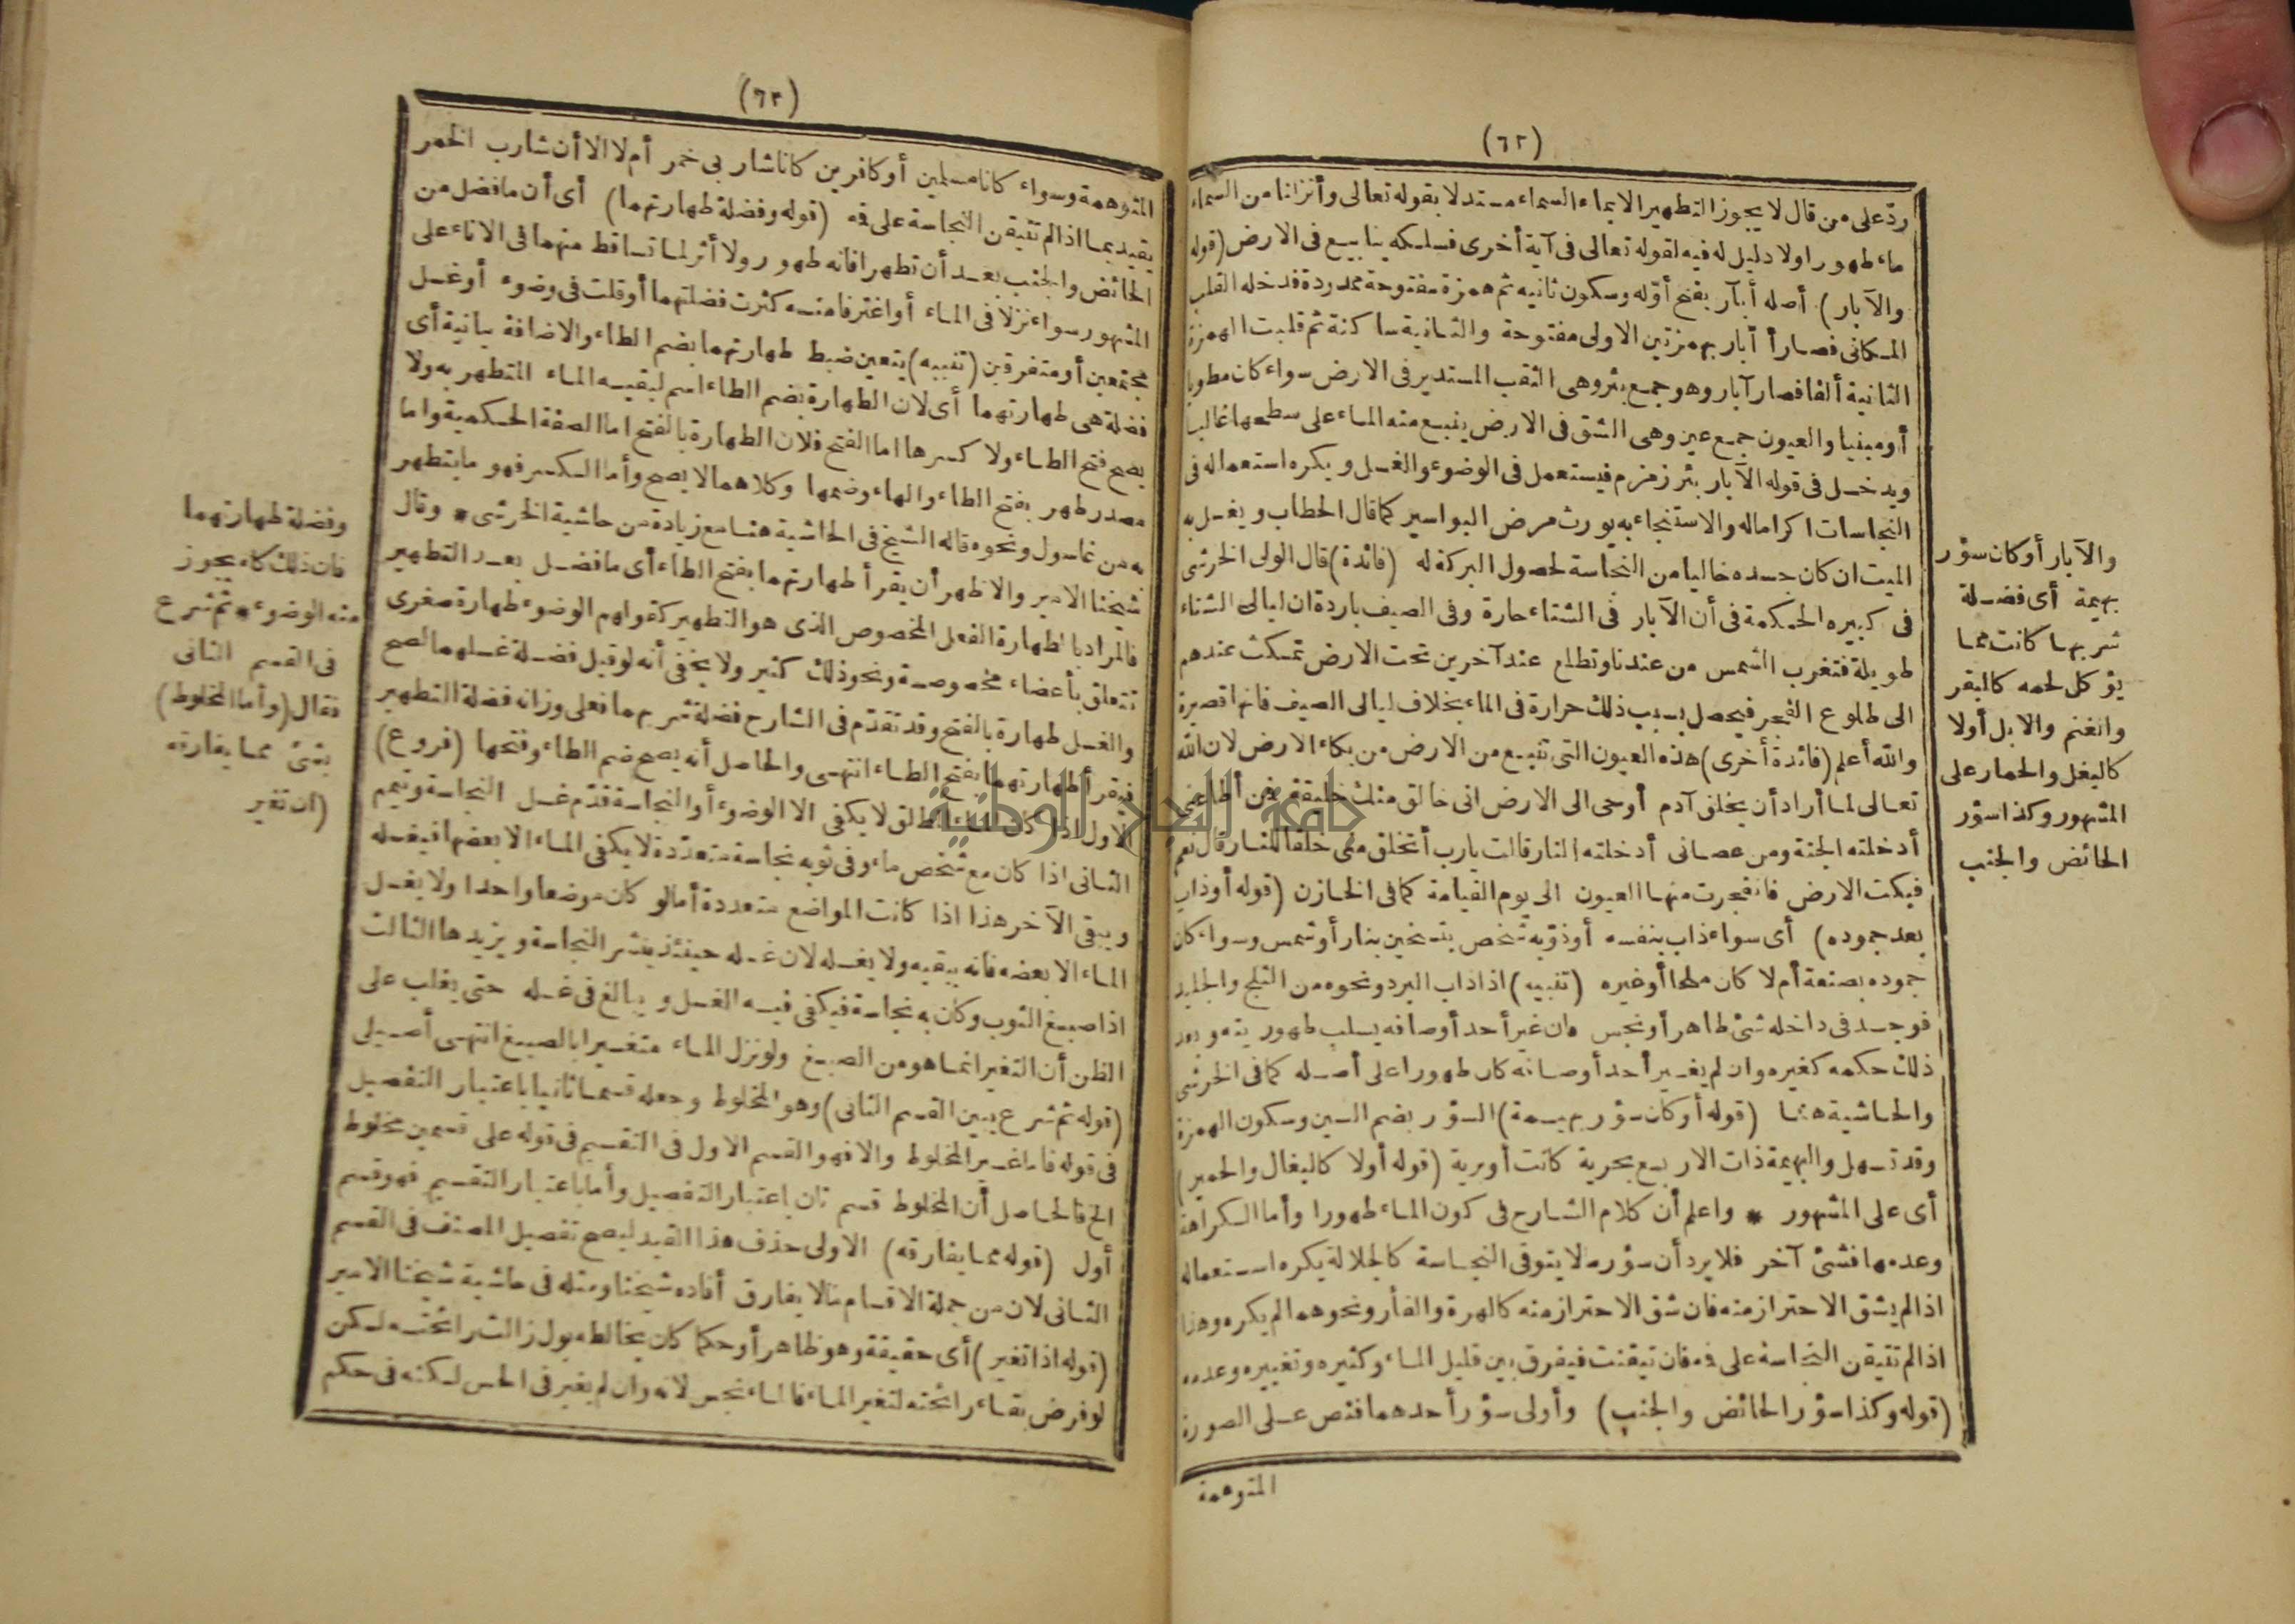 (٦٢)
ردّ على من قال لا يجوز التطهير الا بماء السماء مستدلا بقوله تعالى وأنزلنا من السماء
ماء طهورا ولا دليل له فيه لقوله تعالى فى آية أخرى فسلكه ينابيع فى الارض (قوله
والآبار) أصله أبآر بفتح أوّله وسكون ثانيه ثم همزة مفتوحة ممدودة فدخله القلب
المكانى فصار أ أبار بهمزتين الاولى مفتوحة والثانية ساكنة ثم قلبت الهمزة
الثانية ألفا فصار آبار وهو جمع بئر وهى الثقب المستدير فى الارض سواء كان مطويا
أو مبنيا والعيون جمع عين وهى الشق فى الارض ينبع منه الماء على سطحها غالبا
ويدخل فى قوله الآبار بئر زمزم فيستعمل فى الوضوء والغسل ويكره استعماله فى
النجاسات اكراما له والاستنجاء به يورث مرض البواسير كما قال الحطاب ويغسل به
الميت ان كان جسده خاليا من النجاسة لحصول البركة له (فائدة) قال الولى الخرشى
فى كبيره الحكمة فى أن الآبار فى الشتاء حارة وفى الصيف باردة ان ليالى الشتاء
طويلة فتغرب الشمس من عندنا وتطلع عند آخرين تحت الارض تمكث عندهم
الى طلوع الفجر فيحصل بسبب ذلك حرارة فى الماء بخلاف ليالى الصيف فانها قصيرة
والله أعلم (فائدة أخرى) هذه العيون التى تنبع من الارض من بكاء الارض لان الله
تعالى لما أراد أن يخلق آدم أوحى الى الارض انى خالق منك خليقة فمن أطاعنى
أدخلته الجنة ومن عصانى أدخلته النار قالت يارب أتخلق منى خلقا للنار قال نعم
فبكت الارض فانفجرت منها العيون الى يوم القيامة كما فى الخازن (قوله أو ذاب
بعد جموده) أى سواء ذاب بنفسه أو ذوّبه شخص بتسخين بنار أو شمس وسواء كان
جموده بصنعة أم لا كان ملحا أو غيره (تنبيه) اذا ذاب البرد ونحوه من الثلج والجليد
فوجد فى داخله شئ طاهر أو نجس فان غير أحد أوصافه يسلب طهوريته وبعد
ذلك حكمه كغيره وان لم يغير أحد أوصافه كان طهورا على أصله كما فى الخرشى
والحاشية هنا (قوله أو كان سؤر بهيمة) السؤر بضم السين وسكون الهمزة
وقد تسهل والبهيمة ذات الاربع بحرية كانت أو برية (قوله أولا كالبغال والحمير)
أى على المشهور * واعلم أن كلام الشارح فى كون الماء طهورا وأما الكراهة
وعدمها فشئ آخر فلا يرد أن سؤر ما لا يتوقى النجاسة كالجلالة يكره استعماله
اذا لم يشق الاحتراز منه فان شق الاحتراز منه كالهرة والفأر ونحوهما لم يكره وهذا
اذا لم تتيقن النجاسة على فمه فان تيقنت فيفرق بين قليل الماء وكثيره وتغييره وعدمه
(قوله وكذا سؤر الحائض والجنب) وأولى سؤر أحدهما فنص على الصورة
المتوهمة
والآبار أو كان سؤر
بهيمة أى فضلة
شربها كانت مما
يؤكل لحمه كالبقر
والغنم والابل أولا
كالبغل والحمار على
المشهور وكذا سؤر
الحائض والجنب
(٦٣)
المتوهمة وسواء كانا مسلمين أو كافرين كانا شاربى خمر أم لا الا أن شارب الخمر
يقيد بما اذا لم تتيقن النجاسة على فيه (قوله وفضلة طهارتهما) أى أن ما فضل من
الحائض والجنب بعد أن تطهرا فانه طهور ولا أثر لما تساقط منهما فى الاناء على
المشهور سواء نزلا فى الماء أو اغترفا منه كثرت فضلتهما أو قلت فى وضوء أو غسل
مجتمعين أو متفرقين (تنبيه) يتعين ضبط طهارتهما بضم الطاء والاضافة بيانية أى
فضلة هى طهارتهما أى لان الطهارة بضم الطاء اسم لبقية الماء المتطهر به ولا
يصح فتح الطاء ولا كسرها اما الفتح فلان الطهارة بالفتح اما الصفة الحكمية واما
مصدر طهر بفتح الطاء والهاء وضمها وكلاهما لا يصح وأما الكسر فهو ما يتطهر
به من غاسول ونحوه قاله الشيخ فى الحاشية هنا مع زيادة من حاشية الخرشى * وقال
شيخنا الامير والاظهر أن يقرأ طهارتهما بفتح الطاء أى ما فضل بعد التطهير
فالمراد بالطهارة الفعل المخصوص الذى هو التطهير كقولهم الوضوء طهارة صغرى
تتعلق بأعضاء مخصوصة ونحو ذلك كثير ولا يخفى أنه لو قيل فضلة غسلهما لصح
والغسل طهارة بالفتح وقد تقدّم فى الشارح فضلة شربهما فعلى وزانه فضلة التطهير
فيقرأ طهارتهما بفتح الطاء انتهى والحاصل أنه يصح ضم الطاء وفتحها (فروع)
الاول اذا كان الماء المطلق لا يكفى الا الوضوء أو النجاسة قدّم غسل النجاسة وتيمم
الثانى اذا كان مع شخص ماء وفى ثوبه نجاسة متعدّدة لا يكفى الماء الا بعضها فيغسله
ويبقى الآخر هذا اذا كانت المواضع متعددة أما لو كان موضعا واحدا ولا يغسل
الماء الا بعضه فانه يبقيه ولا يغسله لان غسله حينئذ ينشر النجاسة ويزيدها الثالث
اذا صبغ الثوب وكان به نجاسة فيكفى فيه الغسل ويبالغ فى غسله حتى يغلب على
الظن أن التغير انما هو من الصبغ ولو نزل الماء متغيرا بالصبغ انتهى أصيلى
(قوله ثم شرع يبين القسم الثانى) وهو المخلوط وجعله قسما ثانيا باعتبار التفصيل
فى قوله فاما غير المخلوط والا فهو القسم الاول فى التقسيم فى قوله على قسمين مخلوط
الخ فالحاصل أن المخلوط قسم ثان باعتبار التفصيل وأما باعتبار التقسيم فهو قسم
أول (قوله مما يفارقه) الاولى حذف هذا القيد ليصح تفصيل المصنف فى القسم
الثانى لان من جملة الاقسام ما لا يفارق أفاده شيخنا ومثله فى حاشية شيخنا الامير
(قوله اذا تغير) أى حقيقة وهو ظاهر أو حكما كان يخالطه بول زالت رائحته لكن
لو فرض بقاء رائحته لتغير الماء فالماء نجس لانه وان لم يغير فى الحس لكنه فى حكم
وفضلة طهارتهما
فان ذلك كله يجوز
منه الوضوء * ثم شرع
فى القسم الثانى
فقال (وأما المخلوط)
بشئ مما يفارقه
(ان تغير
جامعة النجاح الوطنية